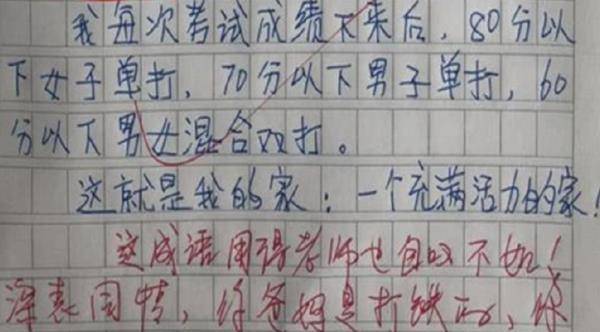 我每次考试成绩下来后，80分以
下女子单打，70分以下男子单打，60
分以下男女混合双打。
这就是我的家：一个充满活力的家！
这成语用得老师也自叹不如！
深表同情，你爸妈是打铁的，你